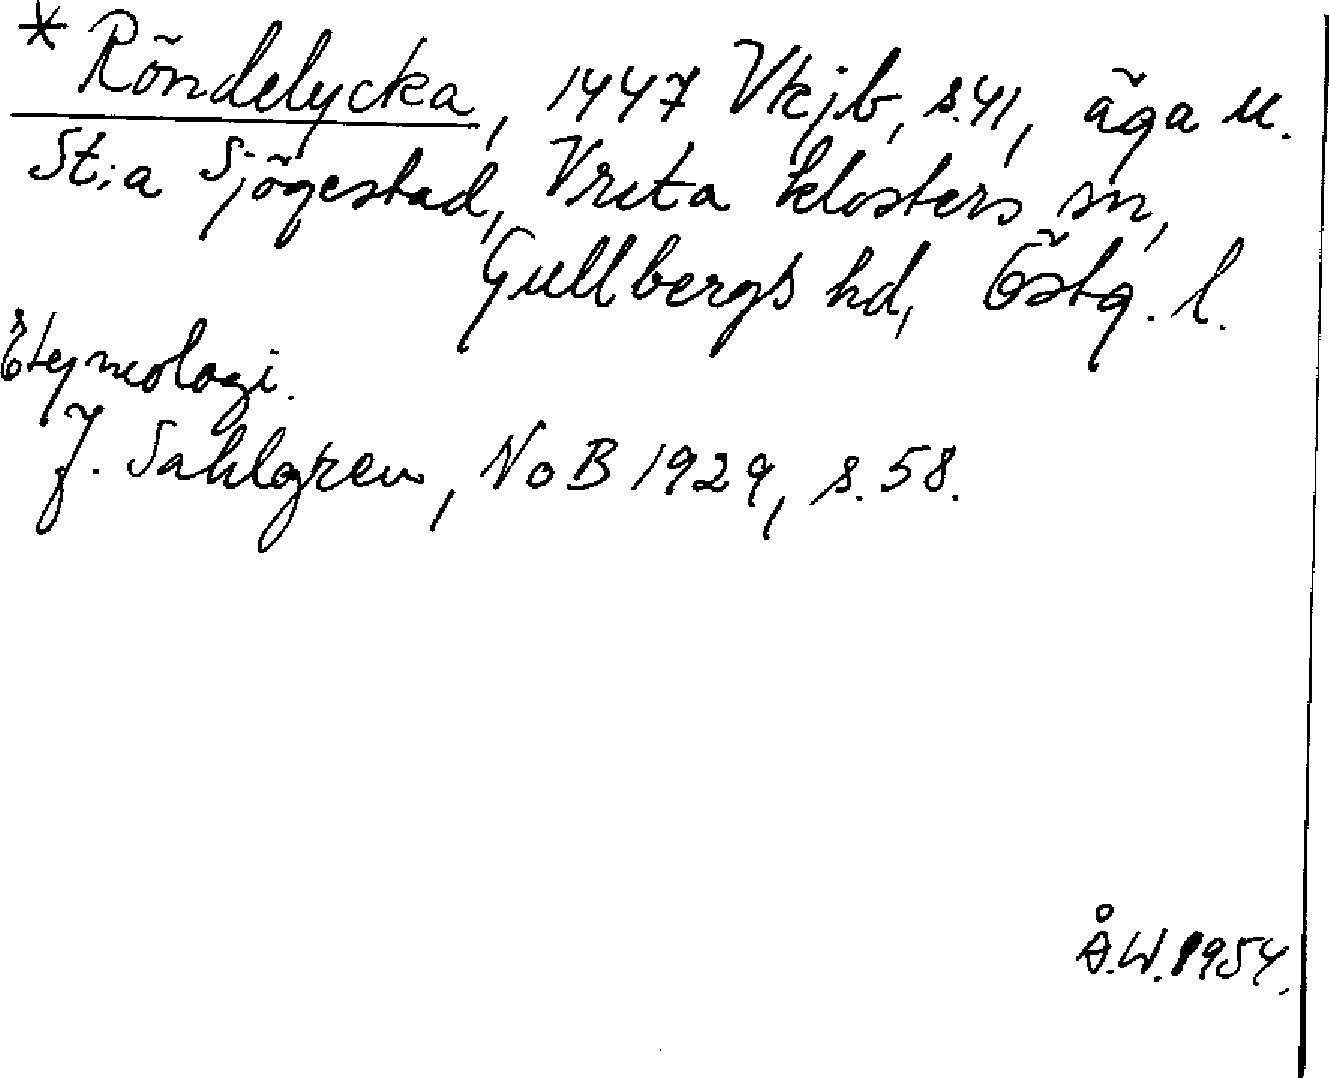 * Röndelycka, 1447 Vkjb, s.41, äga u.
St:a Sjögestad, Vreta klosters sn,
Gullbergs hd, Östg. l.
Etymologi.
J. Sahlgren, NoB 1929, s. 58.
Å.W. 1954.